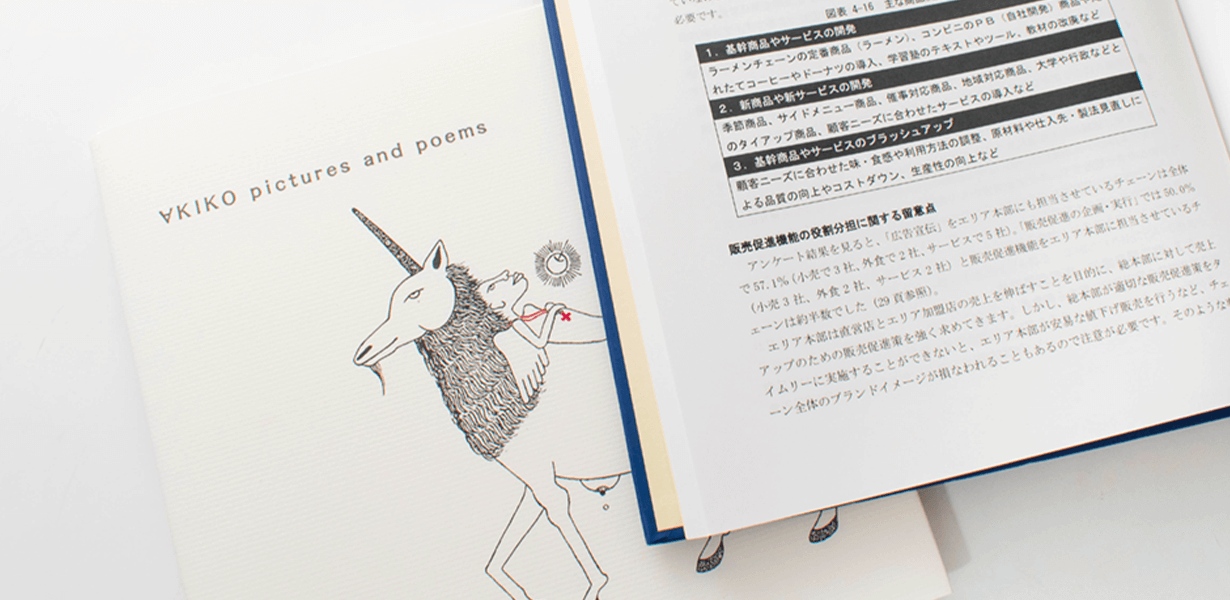 ∀KIKO pictures and poems
必要です。
図表 4-16 主な商品
1．基幹商品やサービスの開発
ラーメンチェーンの定番商品（ラーメン）、コンビニのＰＢ（自社開発）商品や
れたてコーヒーやドーナツの導入、学習塾のテキストやツール、教材の改廃など
2．新商品や新サービスの開発
季節商品、サイドメニュー商品、催事対応商品、地域対応商品、大学や行政などと
のタイアップ商品、顧客ニーズに合わせたサービスの導入など
3．基幹商品やサービスのブラッシュアップ
顧客ニーズに合わせた味・食感や利用方法の調整、原材料や仕入先・製法見直しに
よる品質の向上やコストダウン、生産性の向上など
販売促進機能の役割分担に関する留意点
アンケート結果を見ると、「広告宣伝」をエリア本部にも担当させているチェーンは全体
で57.1%（小売で3社、外食で2社、サービスで5社）。「販売促進の企画・実行」では50.0%
（小売3社、外食2社、サービス2社）と販売促進機能をエリア本部に担当させているチ
ェーンは約半数でした（29頁参照）。
エリア本部は直営店とエリア加盟店の売上を伸ばすことを目的に、総本部に対して売上
アップのための販売促進策を強く求めてきます。しかし、総本部が適切な販売促進策をタ
イムリーに実施することができないと、エリア本部が安易な値下げ販売を行うなど、チェ
ーン全体のブランドイメージが損なわれることもあるので注意が必要です。そのような